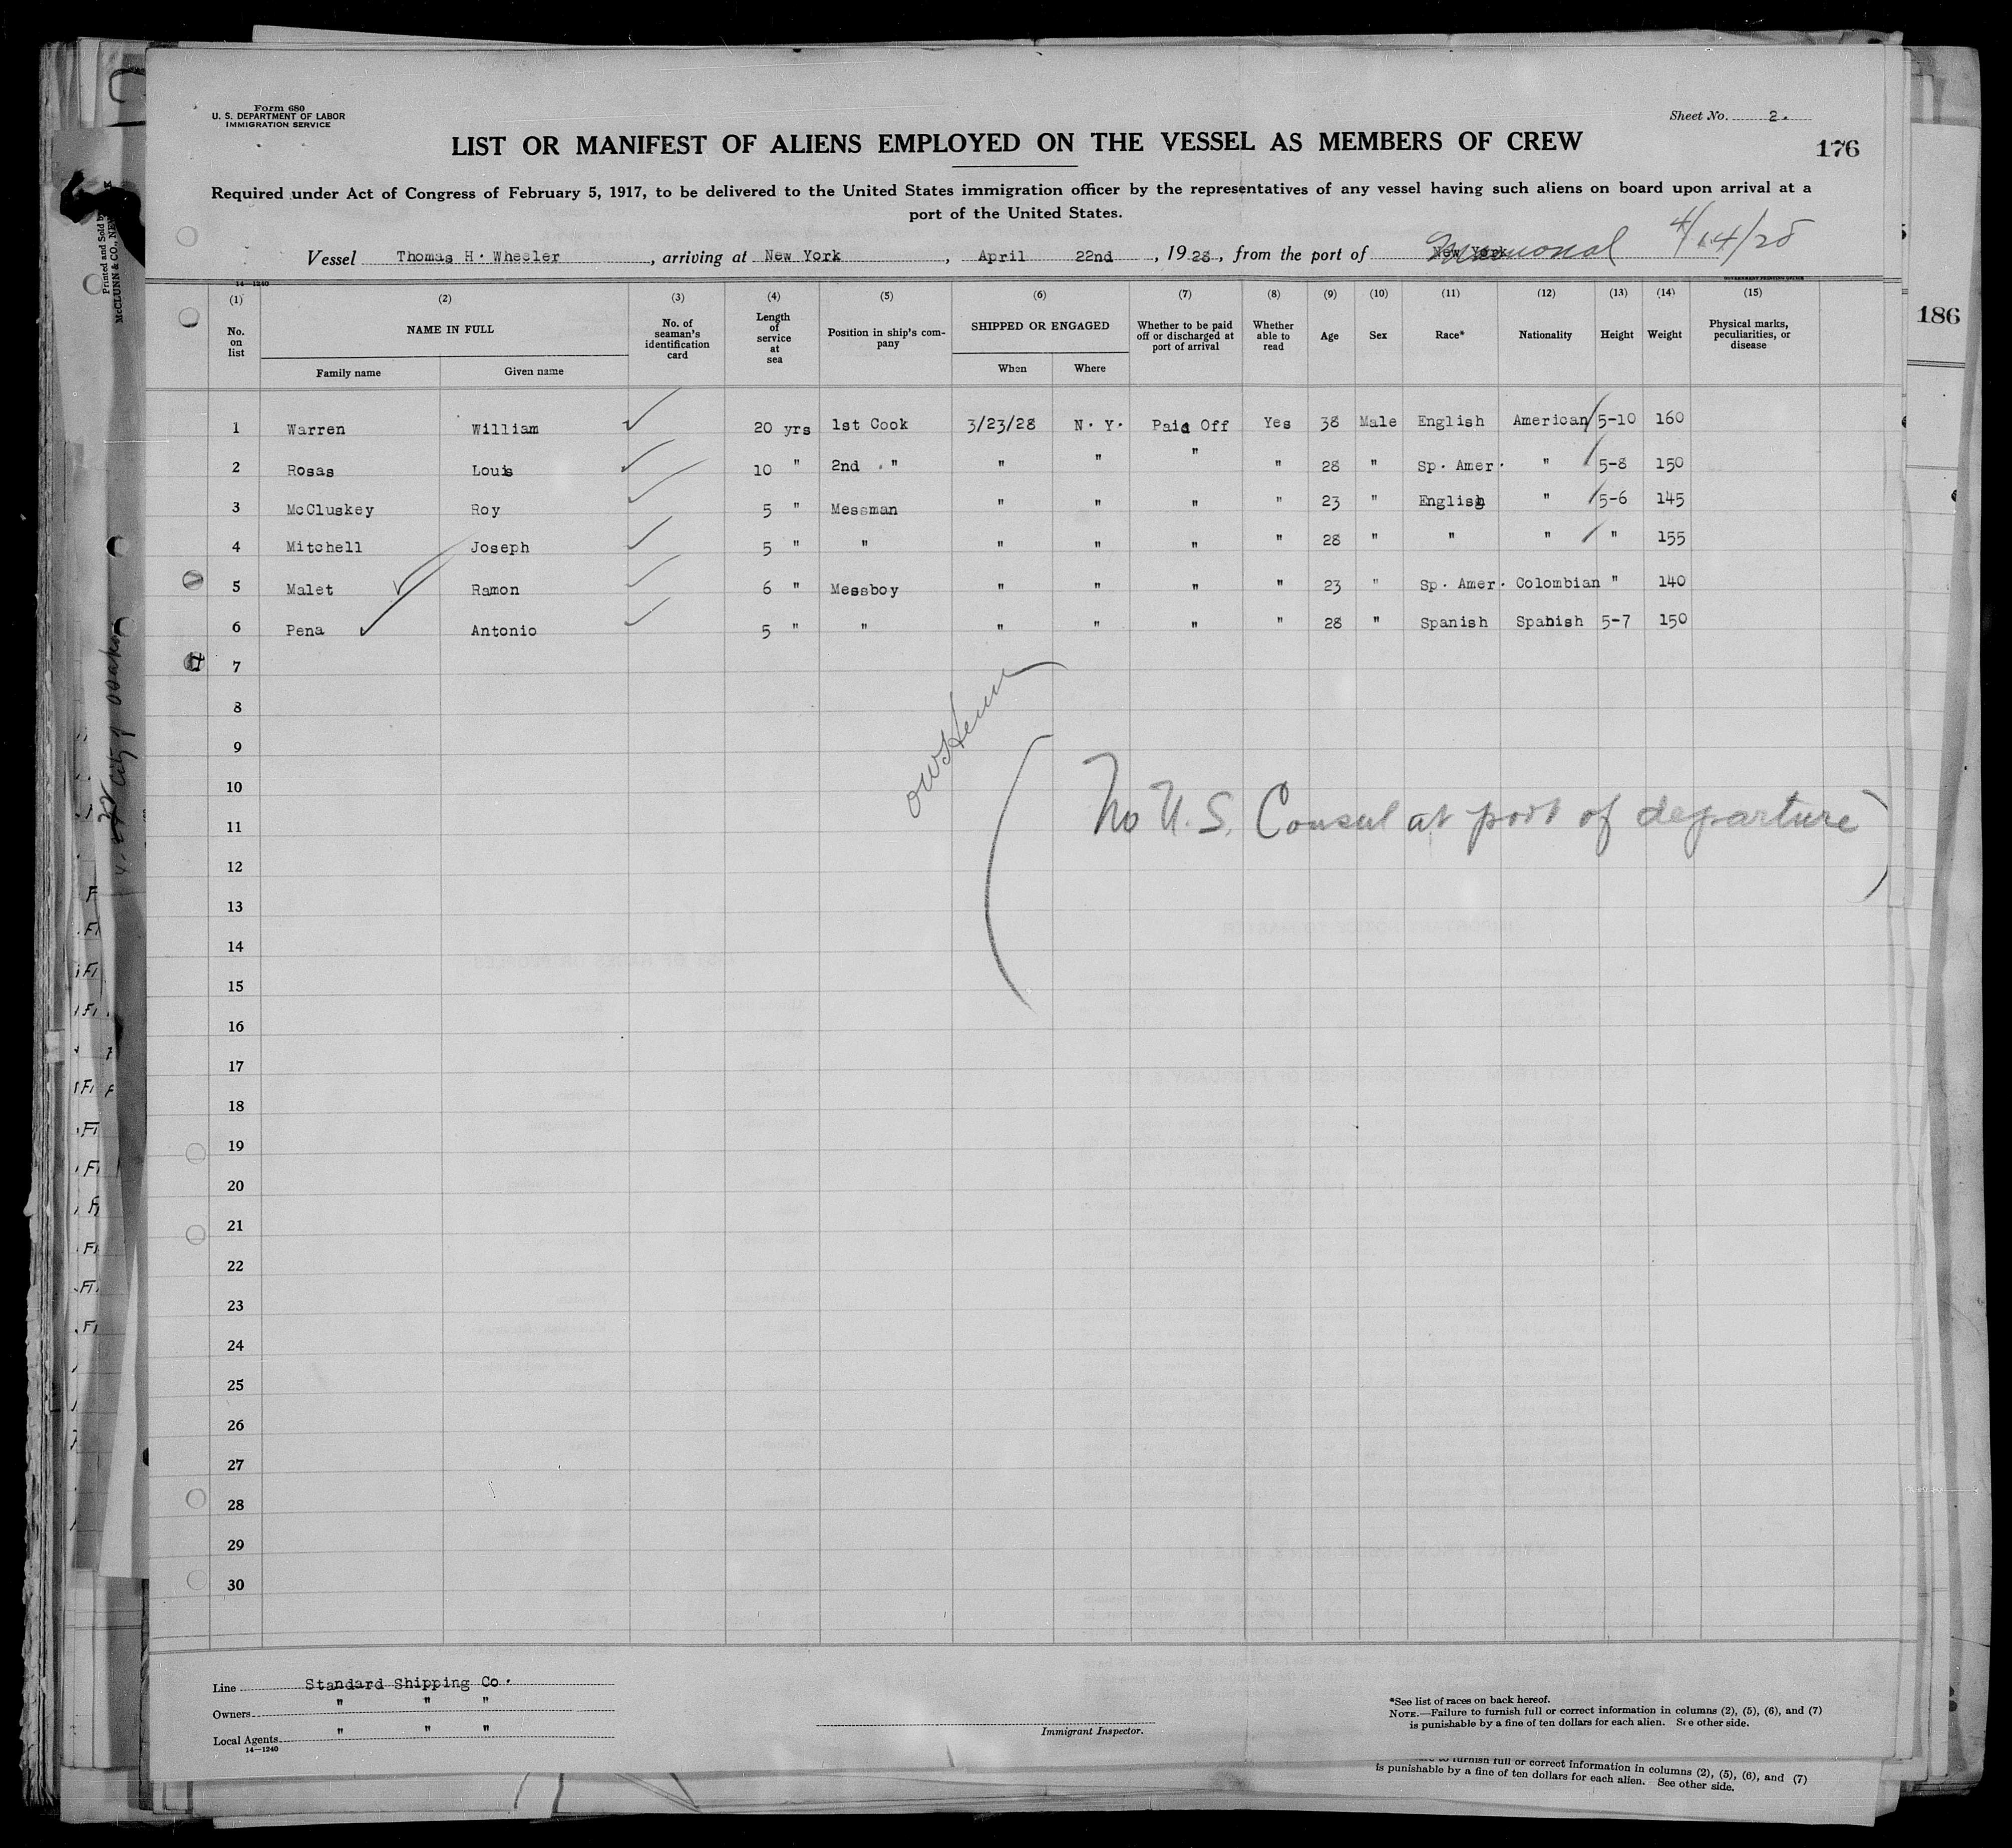 Form 680
U. S. DEPARTMENT OF LABOR
IMMIGRATION SERVICE
Sheet No. 2.
LIST OR MANIFEST OF ALIENS EMPLOYED ON THE VESSEL AS MEMBERS OF CREW
176
Required under Act of Congress of February 5, 1917, to be delivered to the United States immigration officer by the representatives of any vessel having such aliens on board upon arrival at a
port of the United States.
Vessel Thomas H. Wheeler, arriving at New York, April 22nd, 1928, from the port of New York 4/14/28
14—1240
(1) (2) (3) (4) (5) (6) (7) (8) (9) (10) (11) (12) (13) (14) (15)
No. on list NAME IN FULL No. of seaman's identification card Length of service at sea Position in ship's com-pany SHIPPED OR ENGAGED Whether to be paid off or discharged at port of arrival Whether able to read Age Sex Race* Nationality Height Weight Physical marks, peculiarities, or disease
Family name Given name When Where
1 Warren William 20 yrs 1st Cook 3/23/28 N. Y. Paid Off Yes 38 Male English American 5-10 160
2 Rosas Louis 10 " 2nd " " " " " 28 " Sp. Amer. " 5-8 150
3 McCluskey Roy 5 " Messman " " " " 23 " English " 5-6 145
4 Mitchell Joseph 5 " " " " " " 28 " " " " 155
5 Malet Ramon 6 " Messboy " " " " 23 " Sp. Amer. Colombian " 140
6 Pena Antonio 5 " " " " " " 28 " Spanish Spanish 5-7 150
7
8
9
10
(No U.S. Consul at port of departure)
11
12
13
14
15
16
17
18
19
20
21
22
23
24
25
26
27
28
29
30
Line Standard Shipping Co.
Owners " " "
Local Agents " " "
14—1240
Immigrant Inspector.
*See list of races on back hereof.
NOTE.—Failure to furnish full or correct information in columns (2), (5), (6), and (7)
is punishable by a fine of ten dollars for each alien. See other side.
furnish full or correct information in columns (2), (5), (6), and (7)
is punishable by a fine of ten dollars for each alien. See other side.
186
Printed and Sold by
McCLUNN & CO., NEW
City of